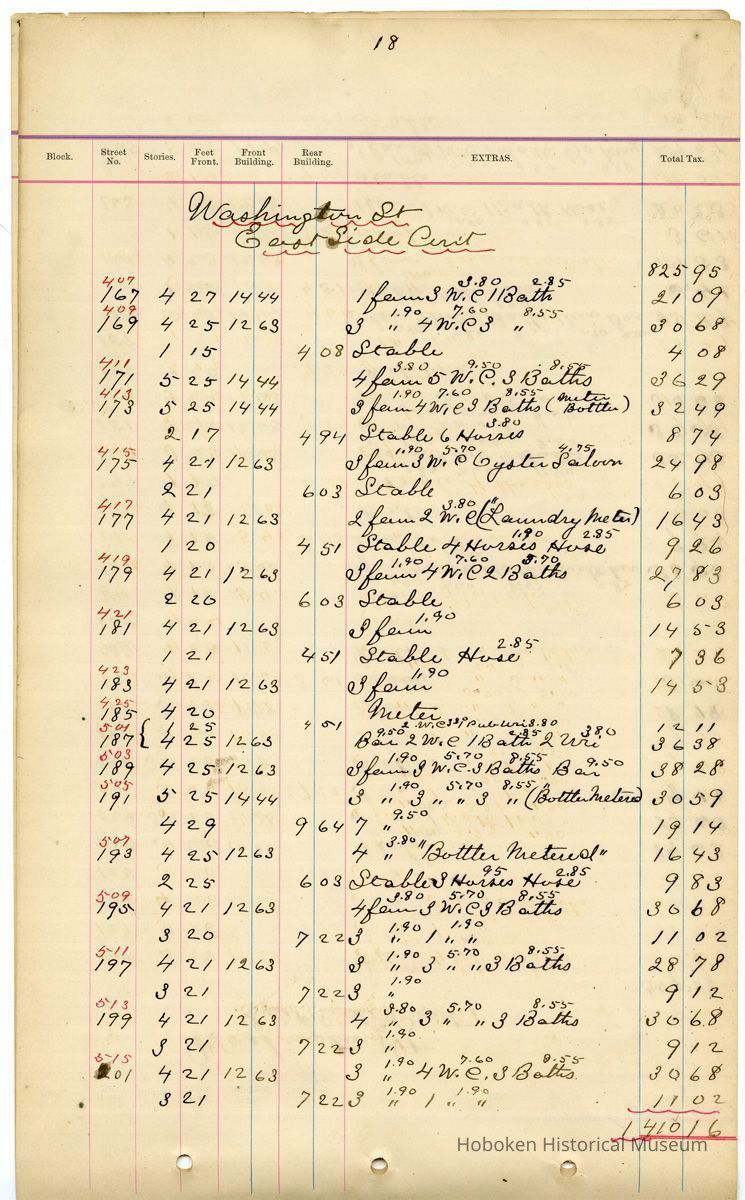 18
Block. Street No. Stories. Feet Front. Front Building. Rear Building. EXTRAS. Total Tax.
Washington St
East Side Cont
825 95
407 3.80 2.85
167 4 27 14 44 1 fam 3 W.C 1 Bath 21 09
409 1.90 7.60 8.55
169 4 25 12 63 3 " 4 W.C 3 " 30 68
1 15 4 08 Stable 4 08
411 3.80 9.50 8.55
171 5 25 14 44 4 fam 5 W.C. 3 Baths 36 29
413 1.90 7.60 8.55
173 5 25 14 44 3 fam 4 W.C 3 Baths (Meter Bottler) 32 49
3.80
2 17 4 94 Stable 6 Horses 8 74
415 1.90 5.70 4.75
175 4 21 12 63 3 fam 3 W.C Oyster Saloon 24 98
2 21 6 03 Stable 6 03
417 3.80 "
177 4 21 12 63 2 fam 2 W.C (Laundry Meter) 16 43
1.90 2.85
1 20 4 51 Stable 4 Horses Hose 9 26
419 1.90 7.60 5.70
179 4 21 12 63 3 fam 4 W.C 2 Baths 27 83
2 20 6 03 Stable 6 03
421 1.90
181 4 21 12 63 3 fam 14 53
2.85
1 21 4 51 Stable Hose 7 36
423 1.90
183 4 21 12 63 3 fam 14 53
425
185 4 20 Meter
501 1 25 4 51 2 W.C 3.80 12 11
9.50 2.85 3.80
187 { 4 25 12 63 Bar 2 W.C 1 Bath 2 Uri 36 38
503 1.90 5.70 8.55 9.50
189 4 25 12 63 3 fam 3 W.C. 3 Baths Bar 38 28
505 1.90 5.70 8.55
191 5 25 14 44 3 " 3 " " 3 " (Bottler Metered) 30 59
9.50
4 29 9 64 7 " 19 14
507 3.80
193 4 25 12 63 4 " "Bottler Metered" 16 43
95 2.85
2 25 6 03 Stable 3 Horses Hose 9 83
509 3.80 5.70 8.55
195 4 21 12 63 4 fam 3 W.C 3 Baths 30 68
1.90 1.90
3 20 7 22 3 " 1 " " 11 02
511 1.90 5.70 8.55
197 4 21 12 63 3 " 3 " " 3 Baths 28 78
1.90
3 21 7 22 3 " 9 12
513 3.80 5.70 8.55
199 4 21 12 63 4 " 3 " " 3 Baths 30 68
1.90
3 21 7 22 3 " 9 12
515 1.90 7.60 8.55
201 4 21 12 63 3 " 4 W.C. 3 Baths 30 68
1.90 1.90
3 21 7 22 3 " 1 " " 11 02
1410 16
Hoboken Historical Museum